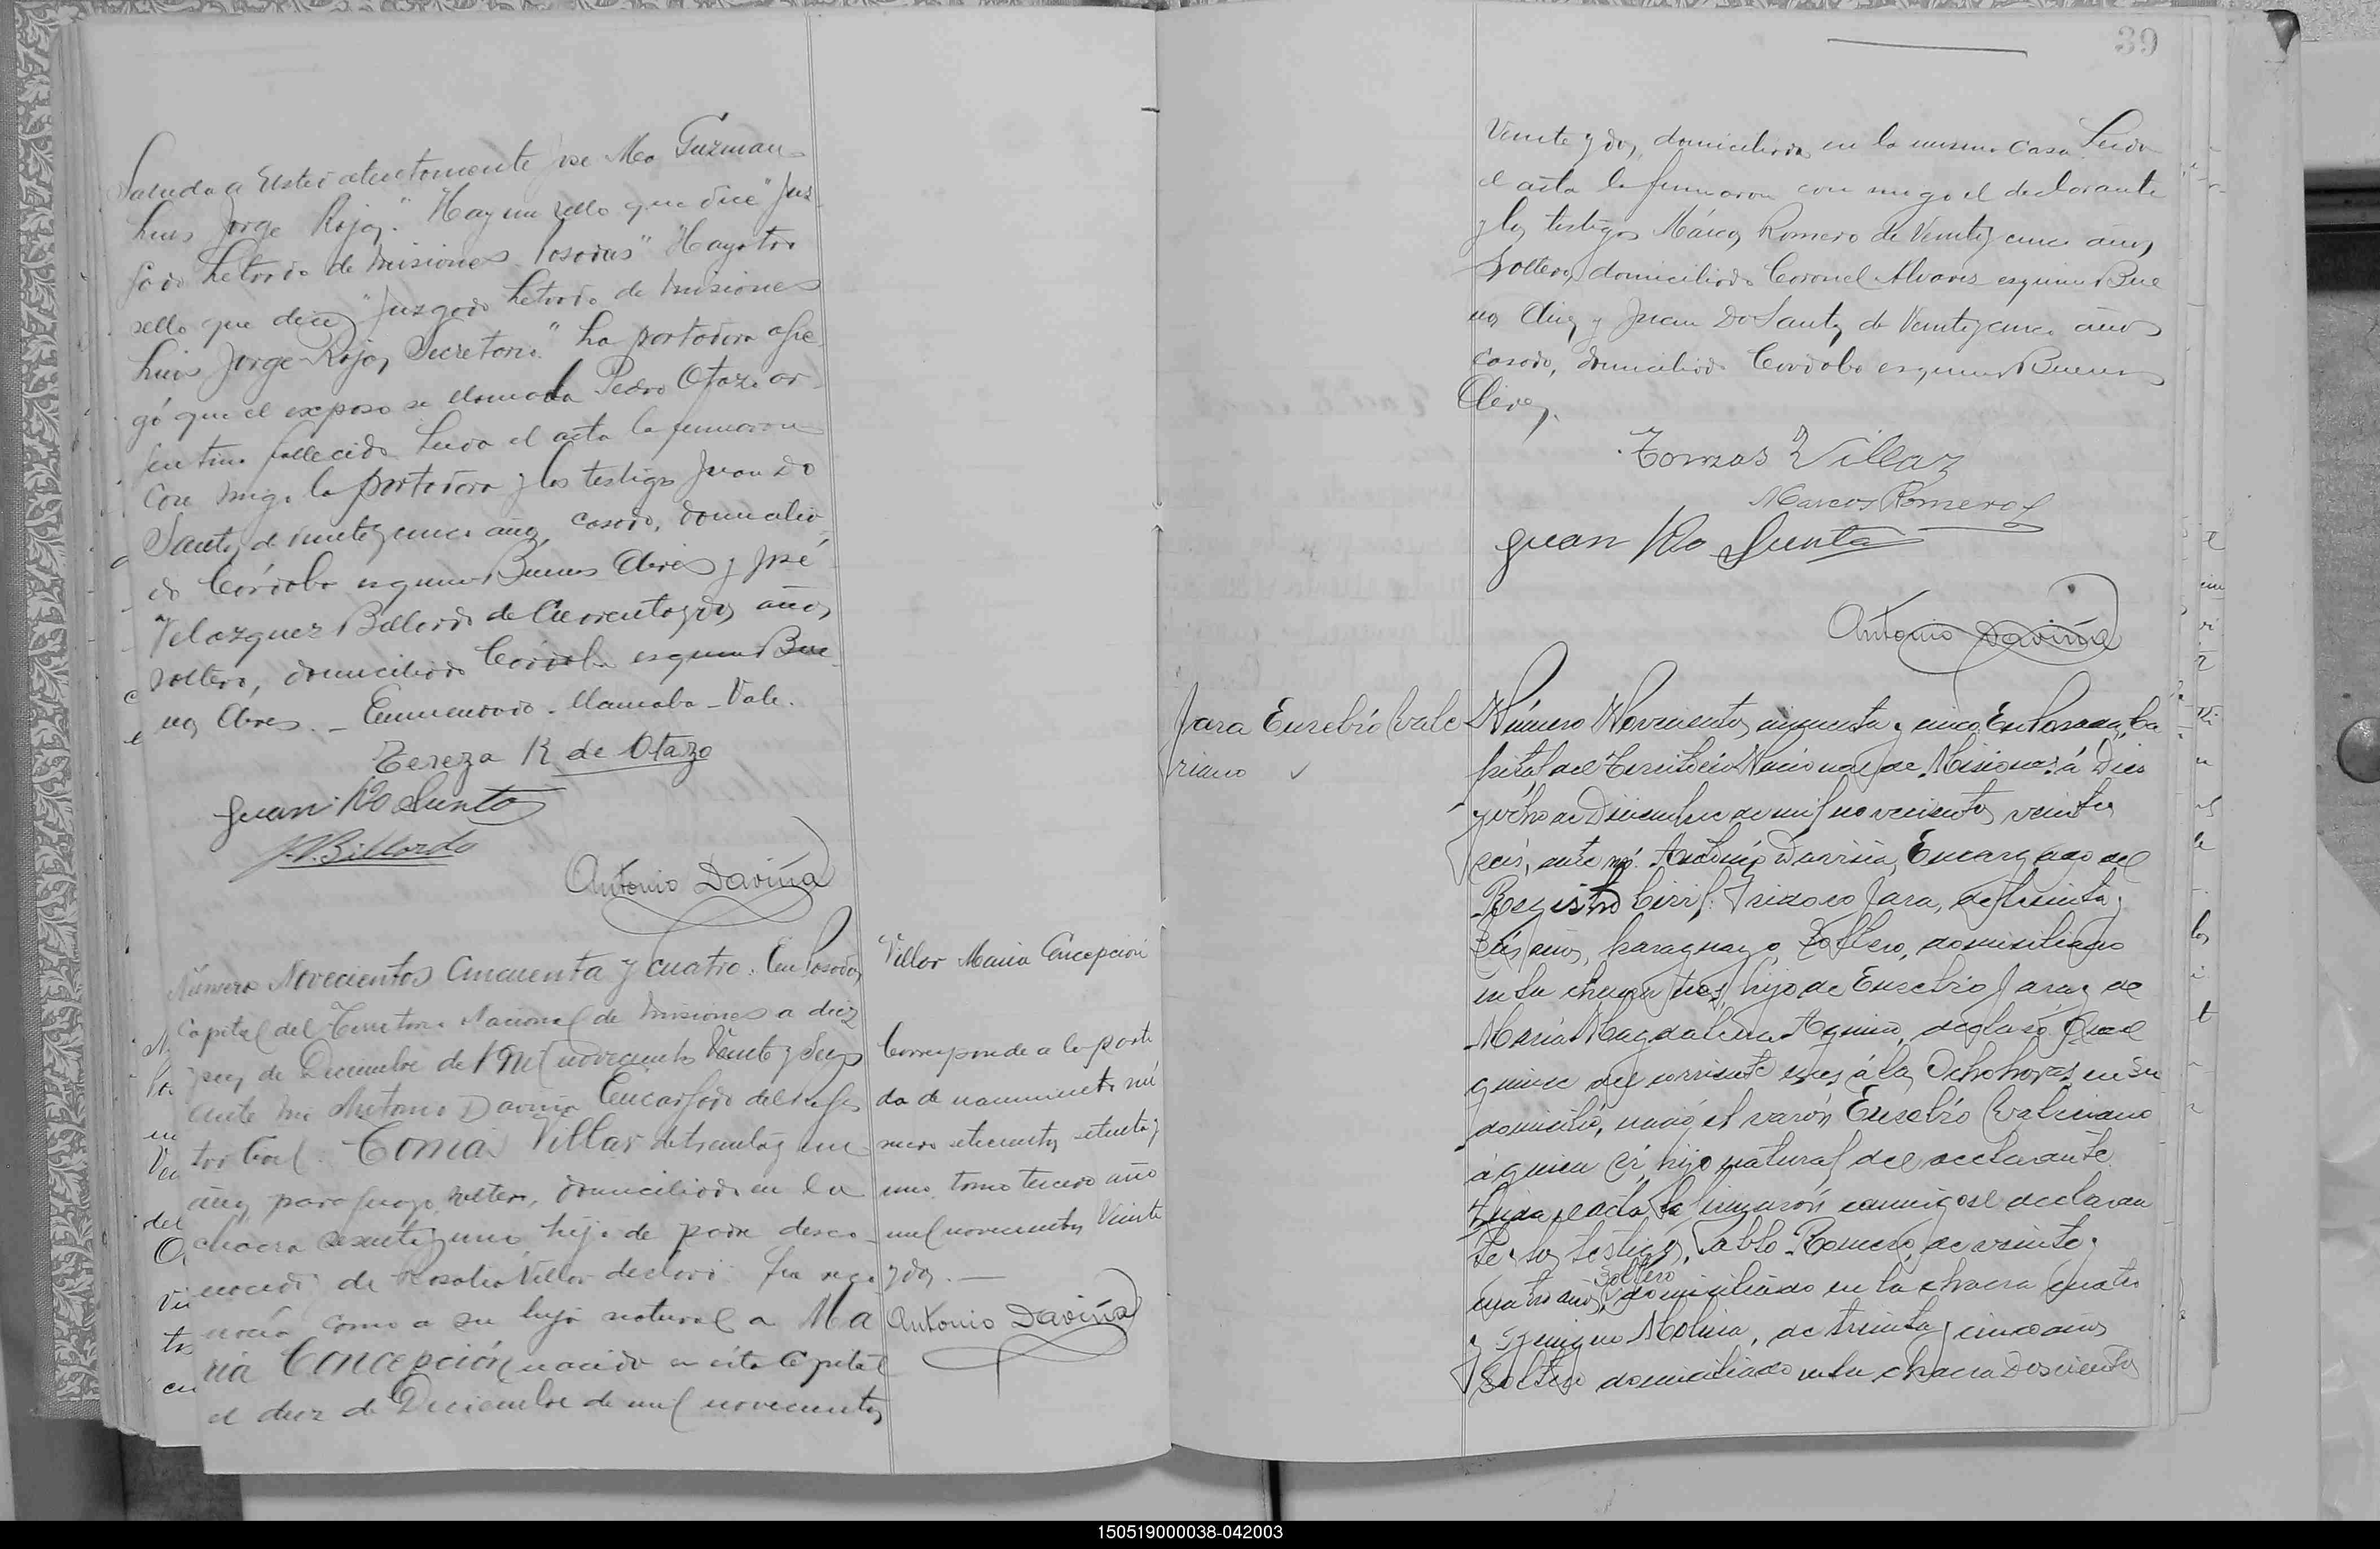 Saluda a Usted atentamente José Ma Guzman
Luis Jorge Rojas." "Hay un sello que dice" Juz-
gado Letrado de Misiones Posadas" "Hay otro
sello que dice "Juzgado Letrado de Misiones
Luis Jorge Rojas Secretario." La portadora agre-
gó que el exposo se llamaba Pedro Otazo ar-
gentino fallecido Leida el acta la firmaron
con migo la portadora y los testigos Juan Do
Santos de veinte y cinco años, casado, domicilia-
do Córdoba esquina Buenos Aires y José
Velazquez Billordo de Cuarenta y dos años,
soltero, domiciliado Córdoba esquina Bue-
nos Aires. _ Enmendado - llamaba - Vale.
Tereza R de Otazo
Juan Do Santos
J.V. Billordo
Antonio Daviña
Número Novecientos Cincuenta y Cuatro. En Posadas
Capital del Territorio Nacional de Misiones a diez
y seis de Diciembre de Mil novecientos Veinte y Seis
ante mi Antonio Daviña Encargado del Regis
tro Civil: Tomás Villar de treinta y un
años, paraguayo, soltero, domiciliado en la
chacra sesenta y uno hijo de padre desco-
nocido de Rosalia Villar declaró: que reco
nocia como a su hija natural a Ma
ria Concepción nacida en ésta Capital
el diez de Diciembre de mil novecientos
Villar Maria Concepción
Corresponde a la parti
da de nacimiento nú
mero setecientos setenta y
uno tomo tercero año
mil novecientos Veinte
y dos. —
Antonio Daviña
39
Veinte y dos, domiciliada en la misma Casa. Leida
el acta la firmaron con migo el declarante
y los testigos Márcos Romero de Veinte y cinco años,
Soltero, domiciliado Coronel Alvarez esquina Bue
nos Aires y Juan Do Santos de Veinte y cinco años
casado, domiciliado Cordoba esquina Buenos
Aires.
Tomas Villar
Marcos Romero
Juan Do Santos
Antonio Daviña
Jara Eusebio Vale
riano ✓
Número Novecientos cincuenta y cinco. En Posadas, Ca
pital del Territorio Nacional de Misiones, á Diez
y ocho de Diciembre de mil novecientos veinte y
seis, ante mí: Antonio Daviña, Encargado del
Registro Civil: Isidoro Jara, de treinta y
seis años, paraguayo, soltero, domiciliado
en la chacra tres, hijo de Eusebio Jara y de
María Magdalena Aquino, declaró: Que el
quince del corriente mes, á las Ocho horas, en su
domicilio, nació el varón Eusebio Valeriano
á quien es hijo natural del declarante.
Leida el acta, la firmarón conmigo el declaran
te y los testigos, Pablo Romero, de veinte y
soltero
cuatro años, domiciliado en la chacra cuatro
y Molina, de treinta y cinco años
Soltero domiciliado en la chacra Doscientos